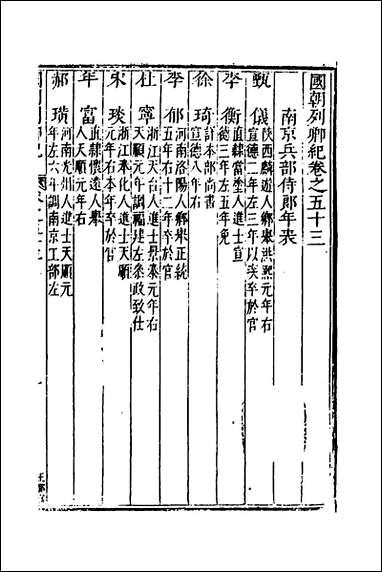 國朝列卿紀卷之五十三
南京兵部侍郎年表
甄儀 陝西麟遊人鄉舉洪熙元年右
宣德二年左三年以疾卒於官
李衡 直隸當塗人進士宣
德三年左五年免
徐琦 詳本部尚書
宣德八年右
李郁 河南洛陽人鄉舉正統
五年右十二年卒於官
杜寧 浙江天台人進士景泰元年右
天順元年調福建左叅政致仕
宋琰 浙江奉化人進士天順
元年右本年卒於官
年富 直隸懷遠人舉
人天順元年右
郝璜 河南光州人進士天順元
年左六年調南京工部左